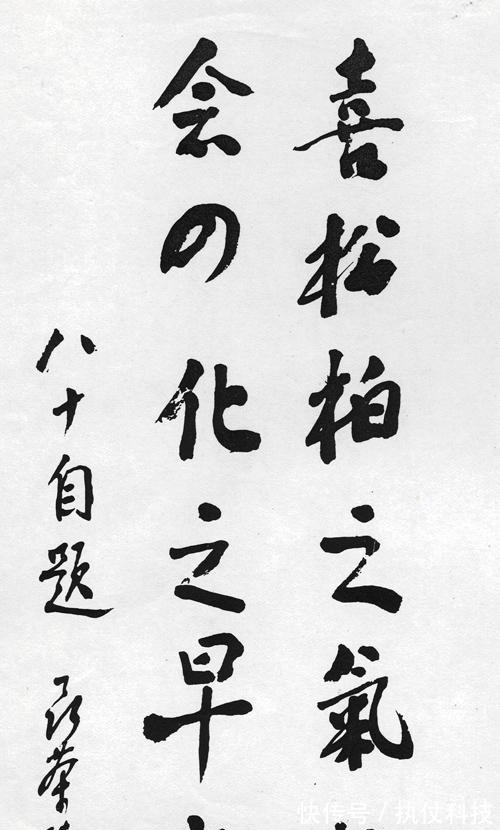 喜松柏之氣
念四化之早
八十自题
快传号/执仪科技